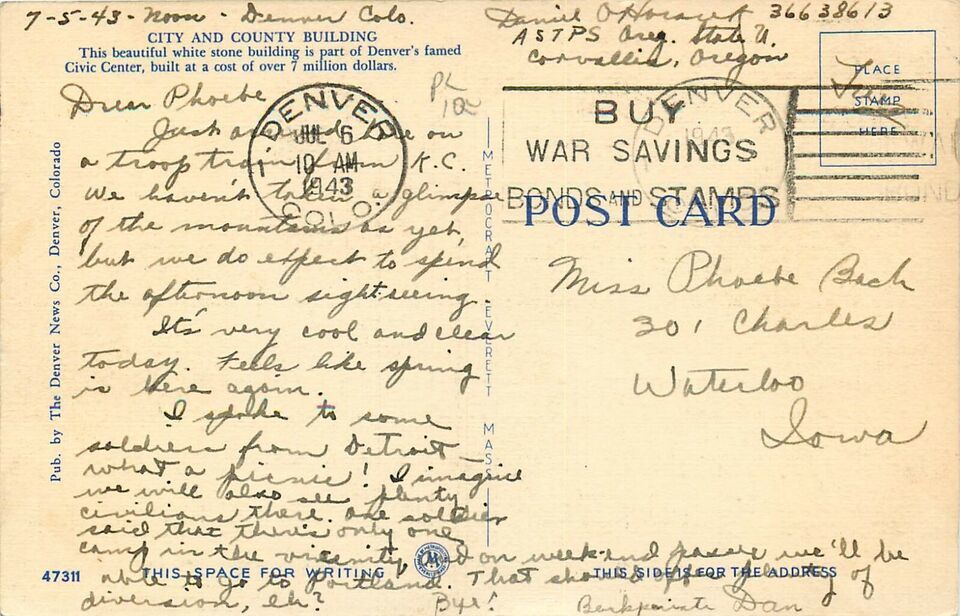 7-5-43 - Noon - Denver Colo.
Daniel O 36638613
ASTPS Oreg. State U.
Corvallis, Oregon
CITY AND COUNTY BUILDING
This beautiful white stone building is part of Denver's famed
Civic Center, built at a cost of over 7 million dollars.
Dear Phoebe
Just arrived here on
a troop train from K.C.
We haven't taken a glimpse
of the mountains as yet,
but we do expect to spend
the afternoon sight seeing.
It's very cool and clear
today. Feels like spring
is here again.
I spoke to some
soldiers from Detroit —
what a picnic! I imagine
we will also see plenty
civilians there. One soldier
said that there's only one
camp in the vicinity,
and on weekend passes we'll be
able to go to Portland. That should give plenty of
diversion, eh? Bye!
Dan
DENVER
JUL 6
10 AM
1943
COLO.
BUY
WAR SAVINGS
BONDS AND STAMPS
DENVER
1943
Free
PLACE
STAMP
HERE
POST CARD
Miss Phoebe Bach
301 Charles
Waterloo
Iowa
Pub. by The Denver News Co., Denver, Colorado
METROCRAFT EVERETT MASS
47311
THIS SPACE FOR WRITING
THIS SIDE IS FOR THE ADDRESS